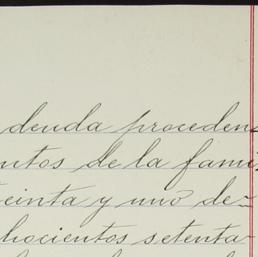 deuda proceden
ntos de la fami
reinta y uno de=
hocientos setenta-